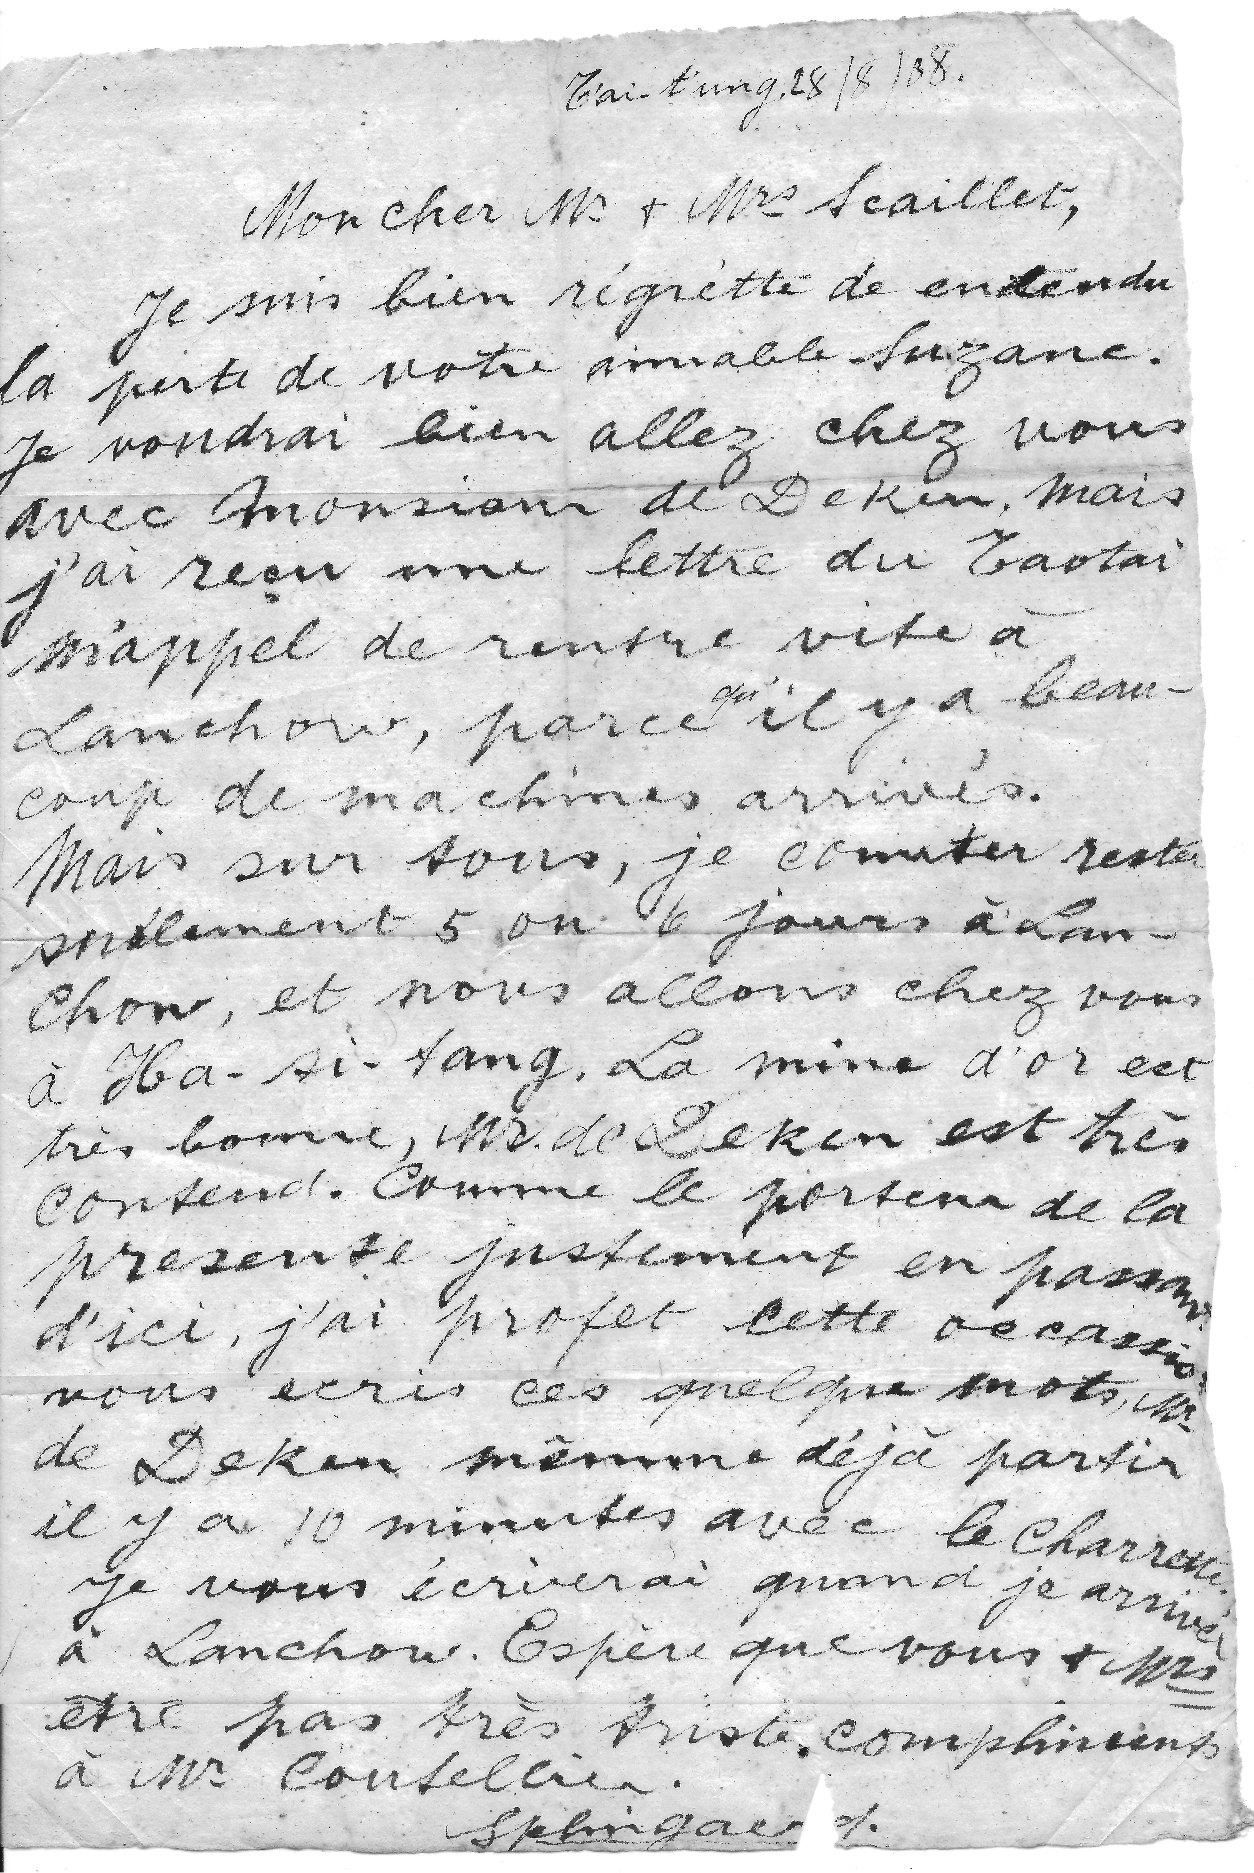 Tai-t'ung, 28/8/08.
Mon cher Mr + Mrs Scaillet,
Je suis bien régrétte de entendu
la perte de votre aimable Suzane.
Je voudrai bien allez chez vous
avec Monsieur de Deken, mais
j'ai reçu une lettre du Taotai
m'appel de rentre vite à
Lanchow, parce qu'il y a beau-
coup de machines arrivés.
Mais sur tous, je compter rester
seulement 5 ou 6 jours à Lan-
chow, et nous allons chez vous
à Ha-si-tang. La mine d'or est
très bonne, Mr. de Deken est très
contend. Comme le porteur de la
presente justement en passant
d'ici, j'ai profet cette occassion
vous ecris ces quelque mots, Mr
de Deken mêmme déjà partir
il y a 10 minutes avec le charrette.
Je vous écriverai quand je arrivé
à Lanchow. Espère que vous + Mrs
être pas très triste. Compliments
à Mr Coutellier.
Splingaerd.